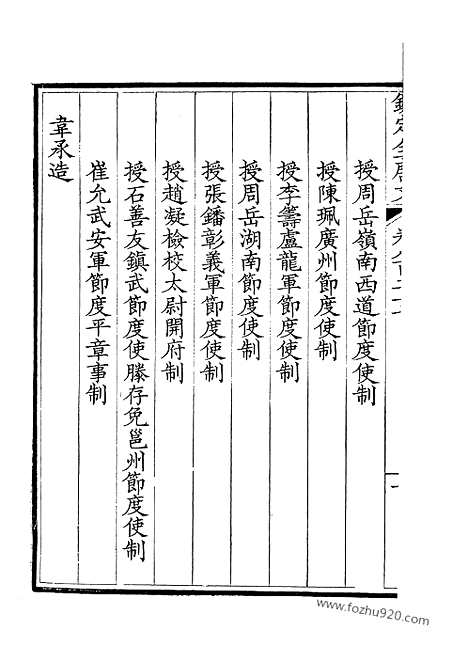 授周岳嶺南西道節度使制
授陳珮廣州節度使制
授李籌盧龍軍節度使制
授周岳湖南節度使制
授張鐇彰義軍節度使制
授趙凝檢校太尉開府制
授石善友鎮武節度使滕存免邕州節度使制
崔允武安軍節度平章事制
韋承造
www.fozhu920.com